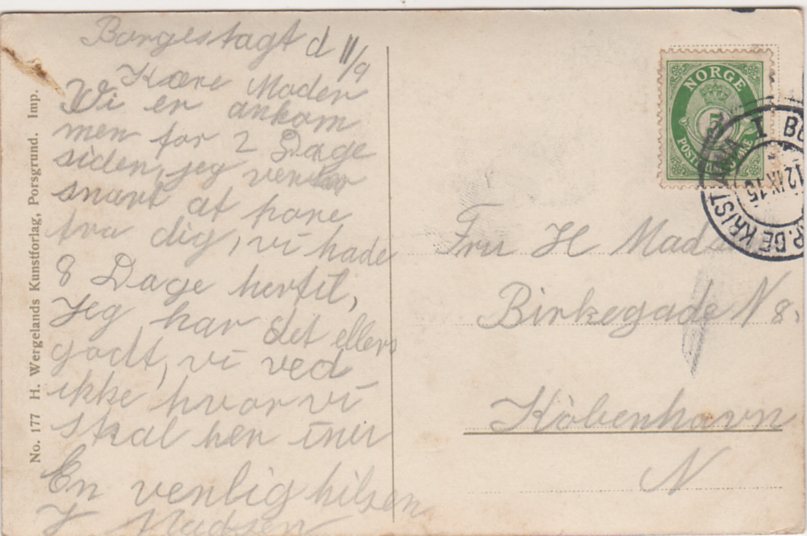 Borgestagt d 11/9
Kære Moder
Vi er ankom
men for 2 Dage
siden, jeg venter
snart at høre
fra dig, vi hade
8 Dage hertil,
Jeg har det ellers
godt, vi ved
ikke hvor vi
skal hen
En venlig hilsen
Madsen
No. 177 H. Wergelands Kunstforlag, Porsgrund. Imp.
NORGE
5
Fru H Mads
Birkegade N 8.
København
N